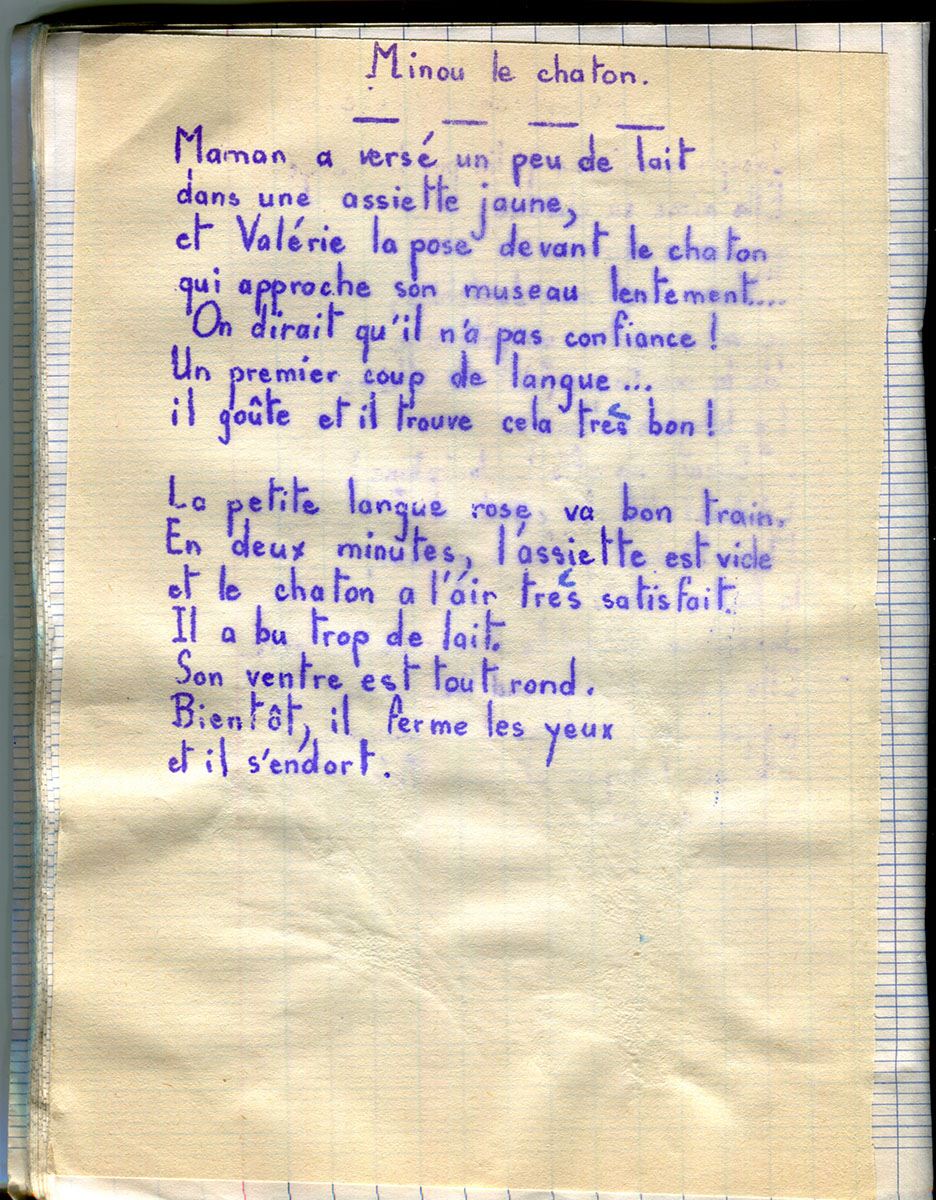 Minou le chaton.
Maman a versé un peu de lait
dans une assiette jaune,
et Valérie la pose devant le chaton
qui approche son museau lentement....
On dirait qu'il n'a pas confiance !
Un premier coup de langue ...
il goûte et il trouve cela très bon !
La petite langue rose va bon train.
En deux minutes, l'assiette est vide
et le chaton a l'air très satisfait.
Il a bu trop de lait.
Son ventre est tout rond.
Bientôt, il ferme les yeux
et il s'endort.